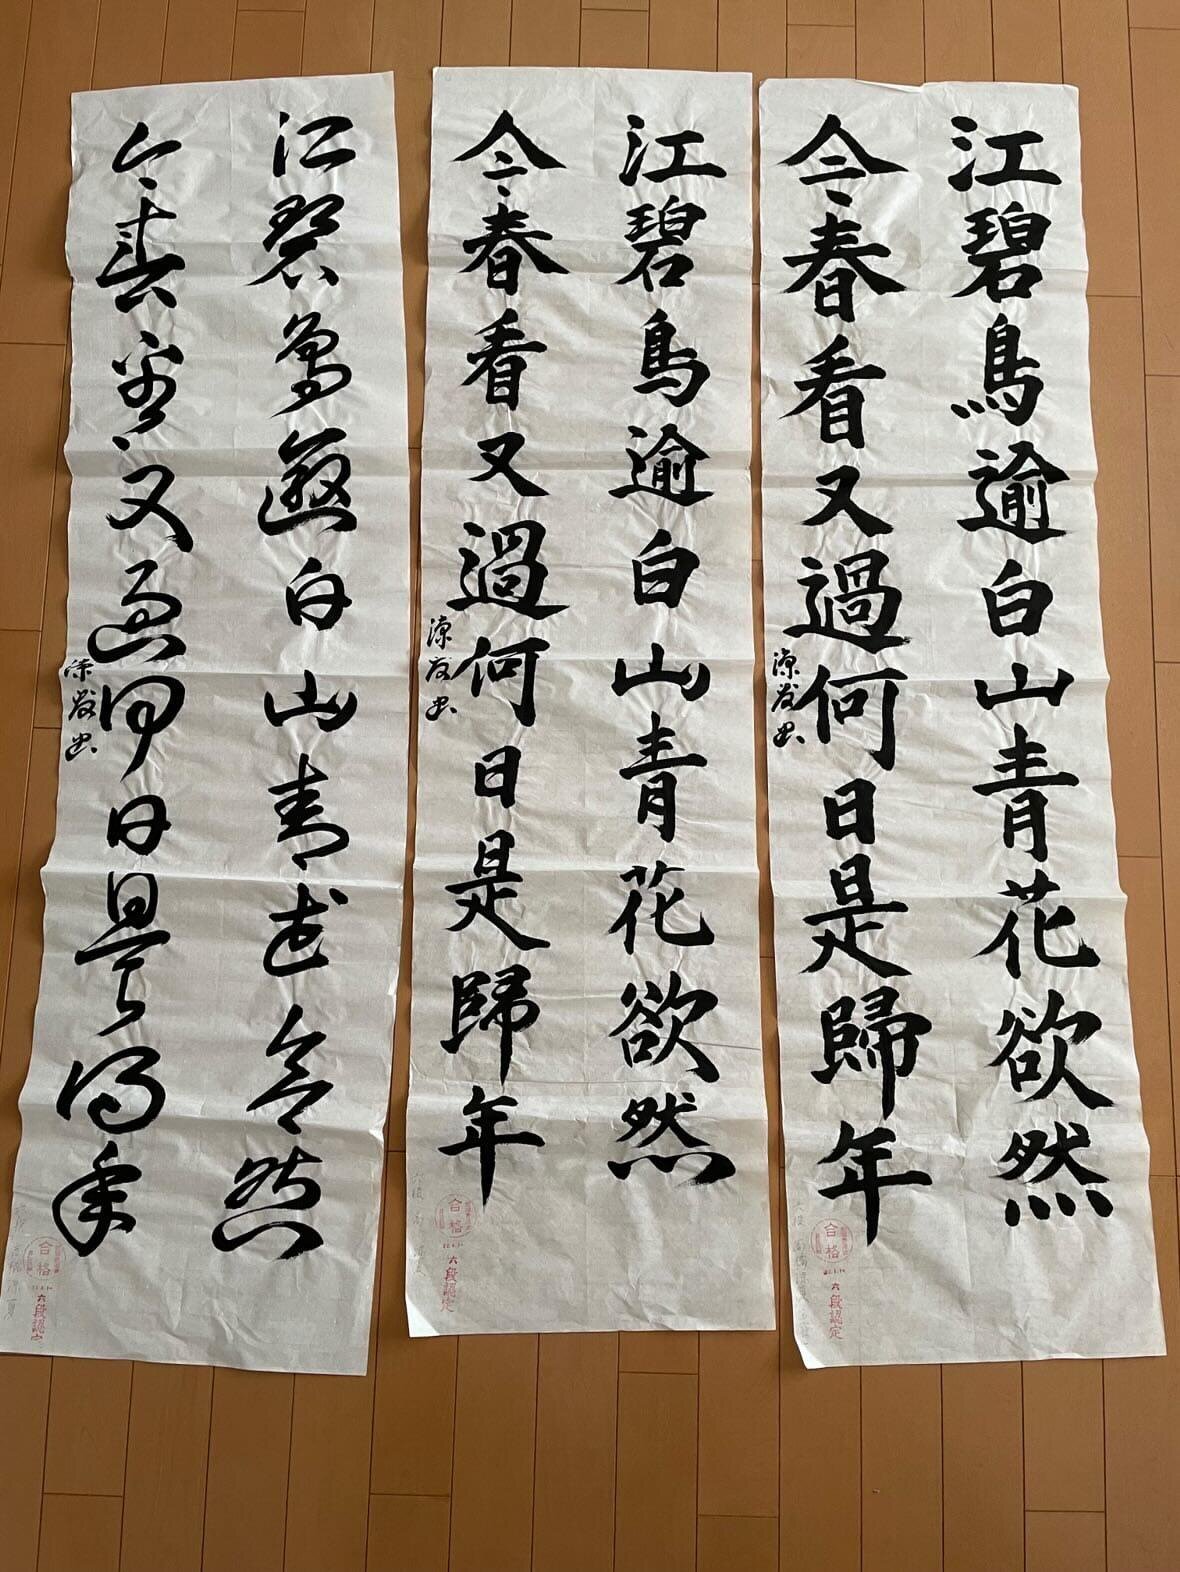 江碧鳥逾白山青花欲然
今春看又過何日是歸年
合格
六段認定
江碧鳥逾白山青花欲然
今春看又過何日是歸年
合格
六段認定
江碧鳥逾白山青花欲然
今春看又過何日是歸年
合格
六段認定